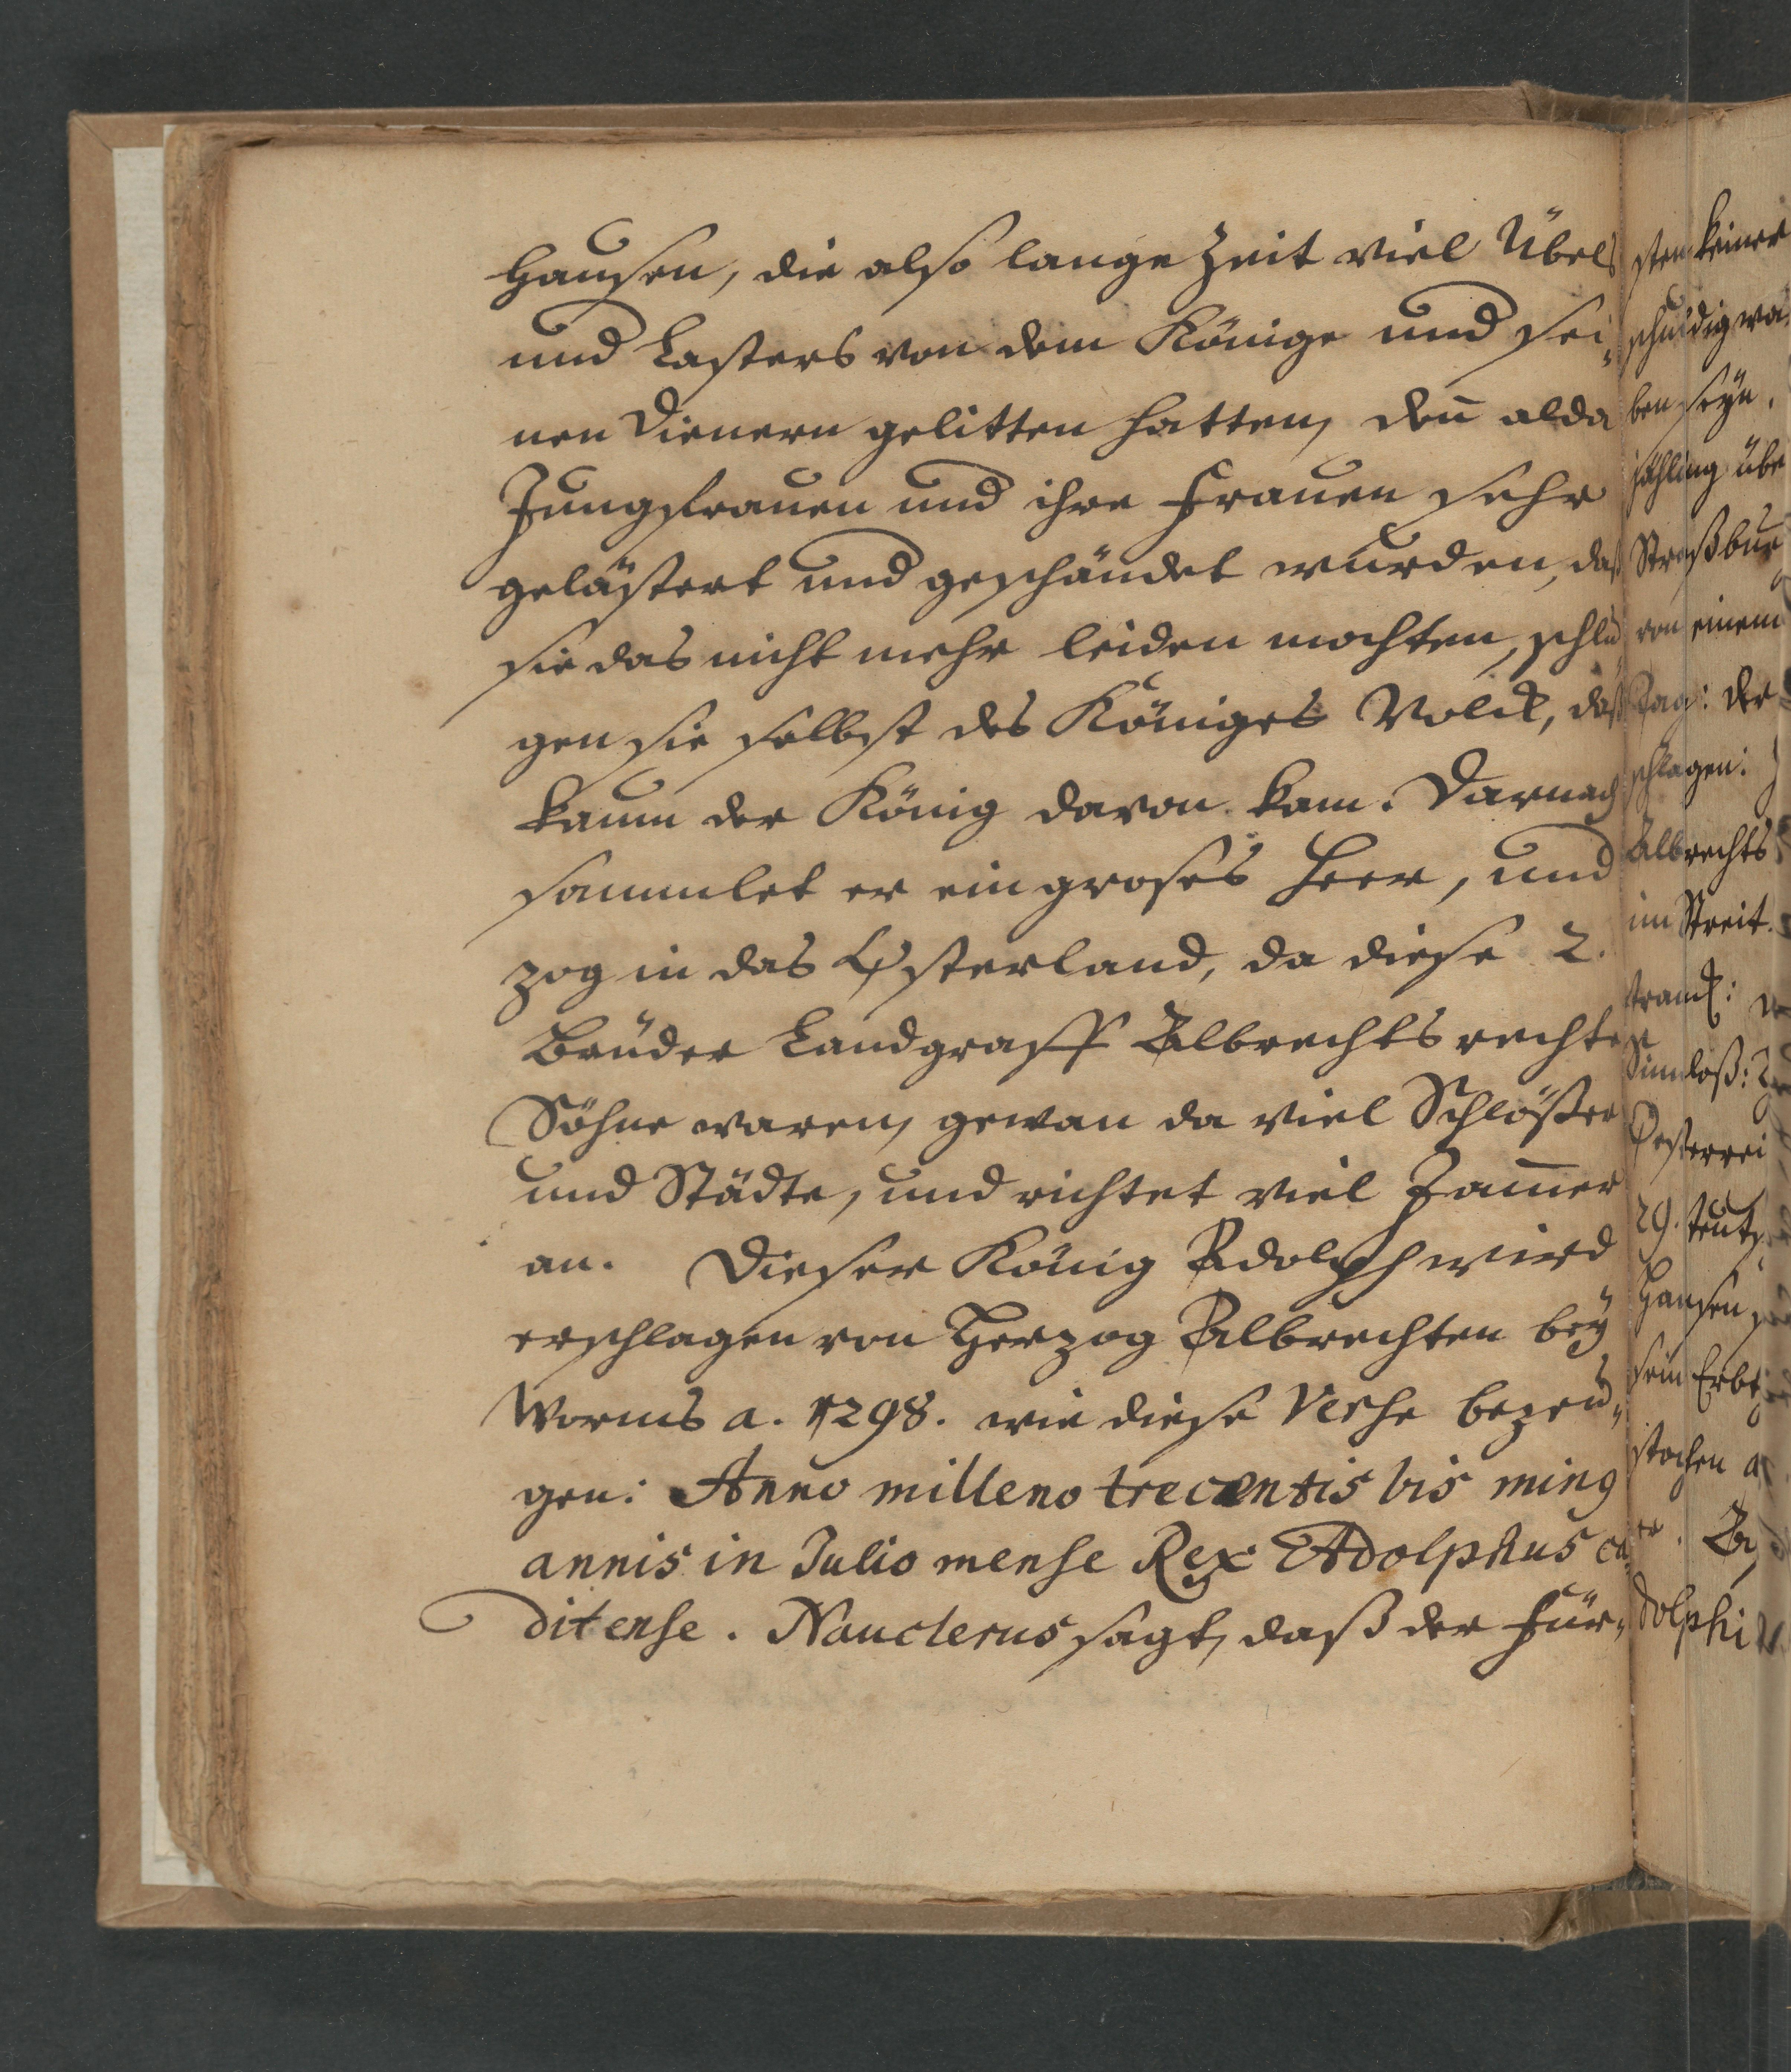 Hausen, die also lange Zeit viel Übels
und Lasters von dem Könige und sei„
nen Dienern gelitten hatten, den̄ alda
Jungfrauen und ihre Frauen sehr
gelästert und geschändet wurden, daß
sie das nicht mehr leiden mochten, schlu
gen sie selbst des Königes Volck, daß
kaum der König davon kam. Darnach
sammlet er ein groses Heer, und
zog in das Osterland, da diese 2.
Brüder Landgraff Albrechts rechte
Söhne waren, gewan da viel Schlößer
und Städte, und richtet viel Jam̄er
an. Dieser König Adolph wird
erschlagen von Herzog Albrechten bey
Worms a. 1298. wie diese Verse bezeu„
gen: Anno milleno trecentis bis minus
annis in Julio mense Rex Adolphus ca„
dit ense. Nauclerus sagt, daß der Für„
sten keiner
schuldig wa
ben seyn.
jähling übe
Straßbur
von einem
Tag: der
schlagen:
Albrechts
im Streit.
Oesterrei
29. teutz
Hausen
sein Erbe
stochen a
dolphi